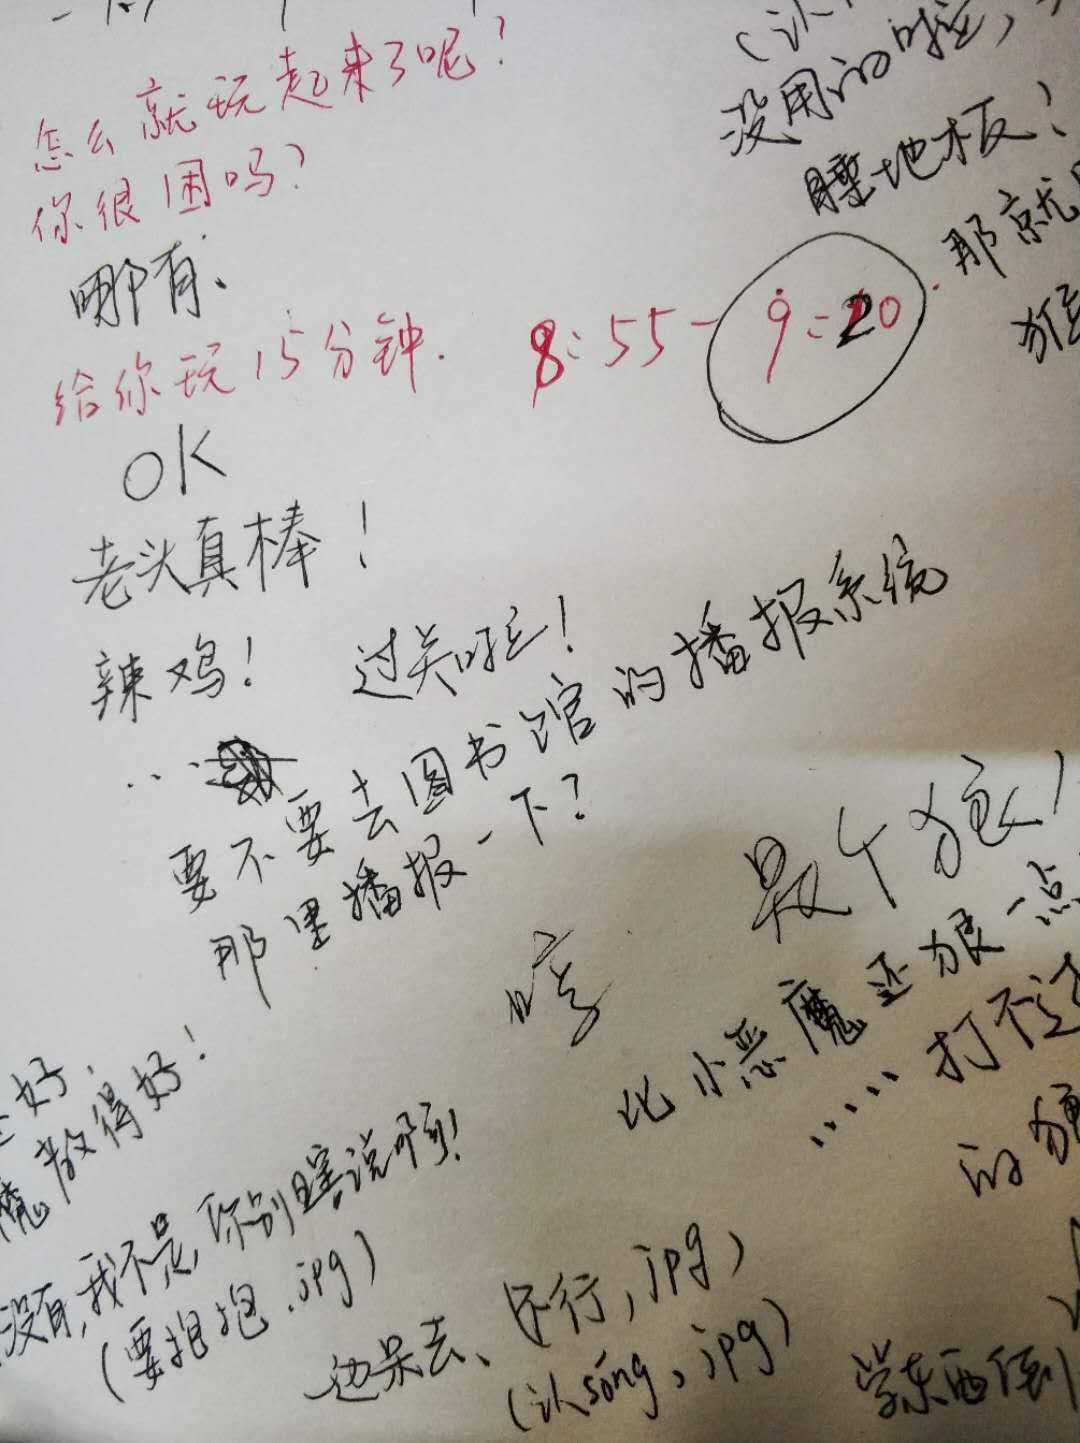 怎么就玩起来了呢?
你很困吗?
哪有.
给你玩15分钟. 8:55-9:20.
OK
老头真棒!
辣鸡! 过关啦!
...
要不要去图书馆的播报系统
那里播报一下?
没用的啦,
睡地板!
那就
是个狼!
哼
比小恶魔还狠一点
.....打不过
的
好.
魔教得好!
没有,我不是,你别瞎说咳!
(要抱抱.jpg)
边呆去、还行,jpg)
(认sóng,jpg)
学东西倒